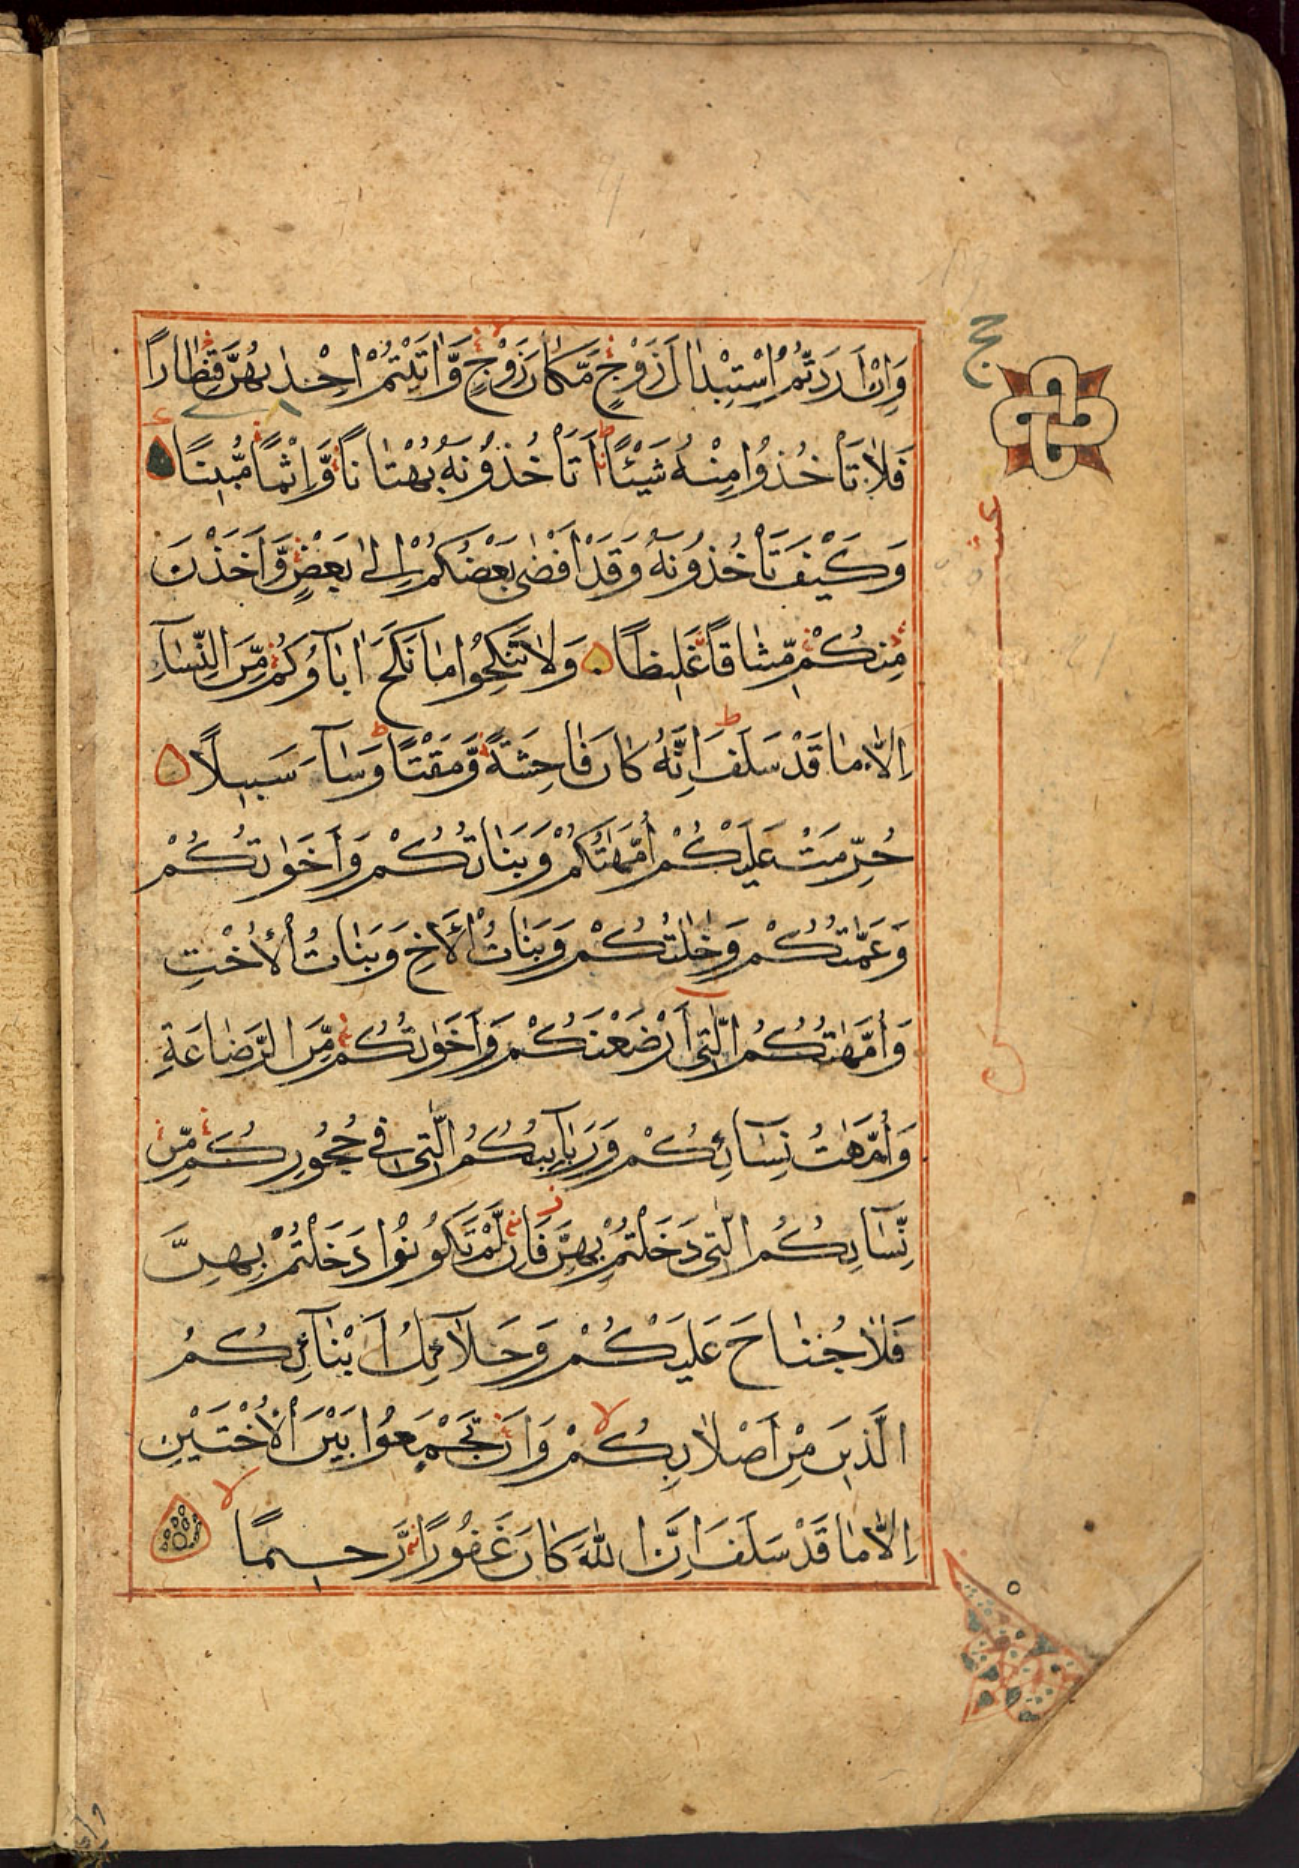 وَاِنْ اَرَدْتُّمُ اسْتِبْدَالَ زَوْجٍ مَّكَانَ زَوْجٍ وَّاٰتَيْتُمْ اِحْدٰىهُنَّ قِنْطَارًا
فَلَا تَاْخُذُوْا مِنْهُ شَيْئًا اَتَاْخُذُوْنَهُ بُهْتَانًا وَّاِثْمًا مُّبِيْنًا
وَكَيْفَ تَاْخُذُوْنَهُ وَقَدْ اَفْضٰى بَعْضُكُمْ اِلٰى بَعْضٍ وَّاَخَذْنَ
مِنْكُمْ مِّيْثَاقًا غَلِيْظًا وَلَا تَنْكِحُوْا مَا نَكَحَ اٰبَآؤُكُمْ مِّنَ النِّسَآءِ
اِلَّا مَا قَدْ سَلَفَ اِنَّهُ كَانَ فَاحِشَةً وَّمَقْتًا وَسَآءَ سَبِيْلًا
حُرِّمَتْ عَلَيْكُمْ اُمَّهٰتُكُمْ وَبَنَاتُكُمْ وَاَخَوٰتُكُمْ
وَعَمّٰتُكُمْ وَخٰلٰتُكُمْ وَبَنَاتُ الْاَخِ وَبَنَاتُ الْاُخْتِ
وَاُمَّهٰتُكُمُ الّٰتِىْ اَرْضَعْنَكُمْ وَاَخَوٰتُكُمْ مِّنَ الرَّضَاعَةِ
وَاُمَّهٰتُ نِسَآئِكُمْ وَرَبَآئِبُكُمُ الّٰتِىْ فِىْ حُجُوْرِكُمْ مِّنْ
نِّسَآئِكُمُ الّٰتِىْ دَخَلْتُمْ بِهِنَّ فَاِنْ لَّمْ تَكُوْنُوْا دَخَلْتُمْ بِهِنَّ
فَلَا جُنَاحَ عَلَيْكُمْ وَحَلَآئِلُ اَبْنَآئِكُمُ
الَّذِيْنَ مِنْ اَصْلَابِكُمْ وَاَنْ تَجْمَعُوْا بَيْنَ الْاُخْتَيْنِ
اِلَّا مَا قَدْ سَلَفَ اِنَّ اللّٰهَ كَانَ غَفُوْرًا رَّحِيْمًا